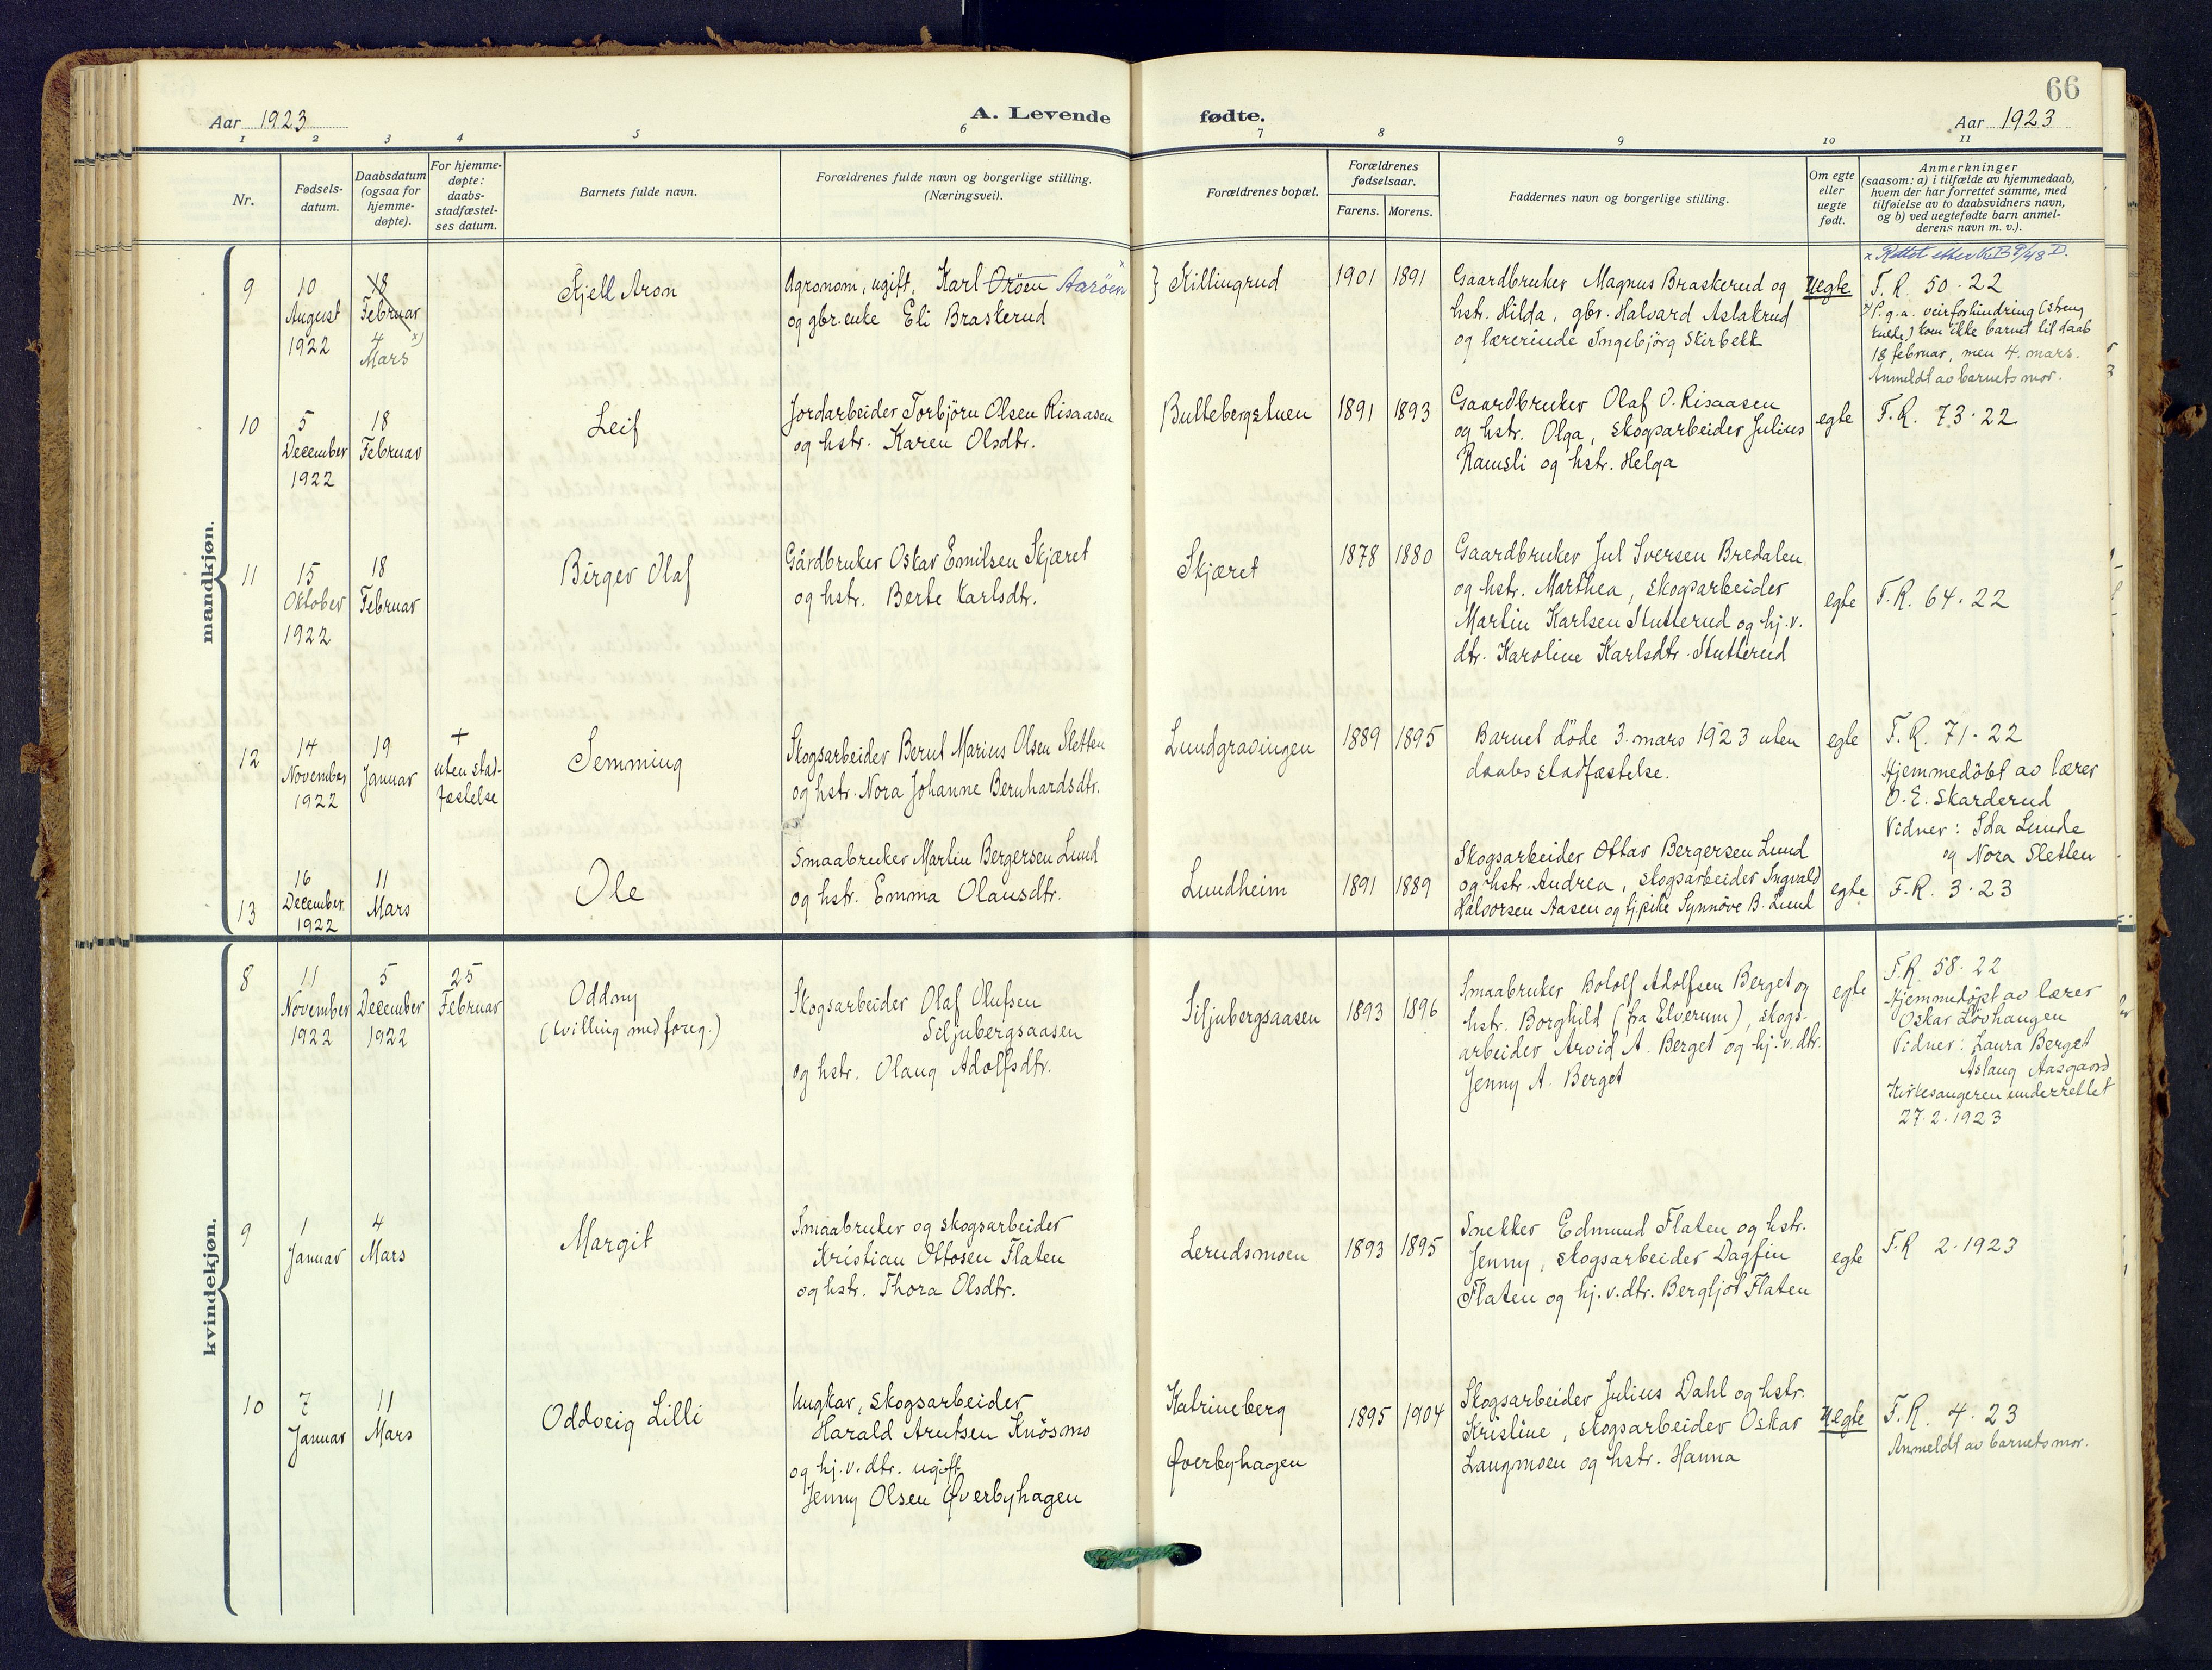 66
Aar 1923
A. Levende
fødte.
Aar 1923
1 2 3 4 5 6 7 8 9 10 11
Nr.
Fødsels-
datum.
Daabsdatum
(ogsaa for
hjemme-
døpte).
For hjemme-
døpte:
daabs-
stadfæstel-
ses datum.
Barnets fulde navn.
Forældrenes fulde navn og borgerlige stilling.
(Næringsvei).
Forældrenes bopæl.
Forældrenes
fødselsaar.
Farens. Morens.
Faddernes navn og borgerlige stilling.
Om egte
eller
uegte
født.
Anmerkninger
(saasom: a) i tilfælde av hjemmedaab,
hvem der har forrettet samme, med
tilføielse av to daabsvidners navn,
og b) ved uegtefødte barn anmel-
derens navn m. v.).
mandkjøn.
9
10
August
1922
18
Februar
4 x)
Mars
Kjell Aron
Agronom, ugift, Karl Oröen Aaröen x
og gbr. enke Eli Braskerud
} Killingrud
1901 1891
Gaardbruker Magnus Braskerud og
hstr. Hilda, gbr. Halvard Aslakrud
og lærerinde Ingebjörg Skirbekk
uegte
x Rettet efter
F. R. 50. 22
x) P. g. a. veirforhindring (streng
kulde) kom ikke barnet til daab
18 februar, men 4. mars.
Anmeldt av barnets mor.
10
5
December
1922
18
Februar
Leif
Jordarbeider Torbjörn Olsen Risaasen
og hstr. Karen Olsdtr.
Bullebergstuen
1891 1893
Gaardbruker Olaf O. Risaasen
og hstr. Olga, skogsarbeider Julius
Ramsli og hstr. Helga
egte
F. R. 73. 22
11
15
Oktober
1922
18
Februar
Birger Olaf
Gårdbruker Oskar Emilsen Skjæret
og hstr. Berte Karlsdtr.
Skjæret
1878 1880
Gaardbruker Jul Iversen Bredalen
og hstr. Marthea, skogsarbeider
Martin Karlsen Stutterud og hj. v.
dtr. Karoline Karlsdtr. Stutterud
egte
F. R. 64. 22
12
14
November
1922
19
Januar
+
uten stad-
fæstelse
Semming
Skogsarbeider Bernt Marius Olsen Sletten
og hstr. Nora Johanne Bernhardsdtr.
Lundgravingen
1889 1895
Barnet döde 3. mars 1923 uten
daabsstadfæstelse.
egte
F. R. 71. 22
Hjemmedöbt av lærer
O. E. Skarderud
Vidner: Ida Lunde
og Nora Sletten
13
16
December
1922
11
Mars
Ole
Smaabruker Martin Bergersen Lund
og hstr. Emma Olausdtr.
Lundheim
1891 1889
Skogsarbeider Ottar Bergersen Lund
og hstr. Andrea, skogsarbeider Ingvald
Halvorsen Aasen og tj. pike Synnöve B. Lund
egte
F. R. 3. 23
kvindekjøn.
8
11
November
1922
5
December
1922
25
Februar
Oddny
(tvilling med foreg.)
Skogsarbeider Olaf Olufsen
Siljubergsaasen
og hstr. Olaug Adolfsdtr.
Siljubergsaasen
1893 1896
Smaabruker Botolf Adolfsen Berget og
hstr. Borghild (fra Elverum), skogs-
arbeider Arvid A. Berget og hj. v. dtr.
Jenny A. Berget
egte
F. R. 58. 22
Hjemmedöpt av lærer
Oskar Lövhaugen
Vidner: Laura Berget
Aslaug Aasgaard
Kirkesangeren underrettet
27. 2. 1923
9
1
Januar
4
Mars
Margit
Smaabruker og skogsarbeider
Kristian Ottosen Flaten
og hstr. Thora Olsdtr.
Lerudsmoen
1893 1895
Snekker Edmund Flaten og hstr.
Jenny, skogsarbeider Dagfin
Flaten og hj. v. dtr. Bergljot Flaten
egte
F. R 2. 1923
10
7
Januar
11
Mars
Oddveig Lilli
Ungkar, skogsarbeider
Harald Arntsen Knösmo
og hj. v. dtr. ugift
Jenny Olsen Øverbyhagen
Katrineberg
Øverbyhagen
1895 1904
Skogsarbeider Julius Dahl og hstr.
Kristine, skogsarbeider Oskar
Langmoen og hstr. Hanna
uegte
F. R. 4. 23
Anmeldt av barnets mor.